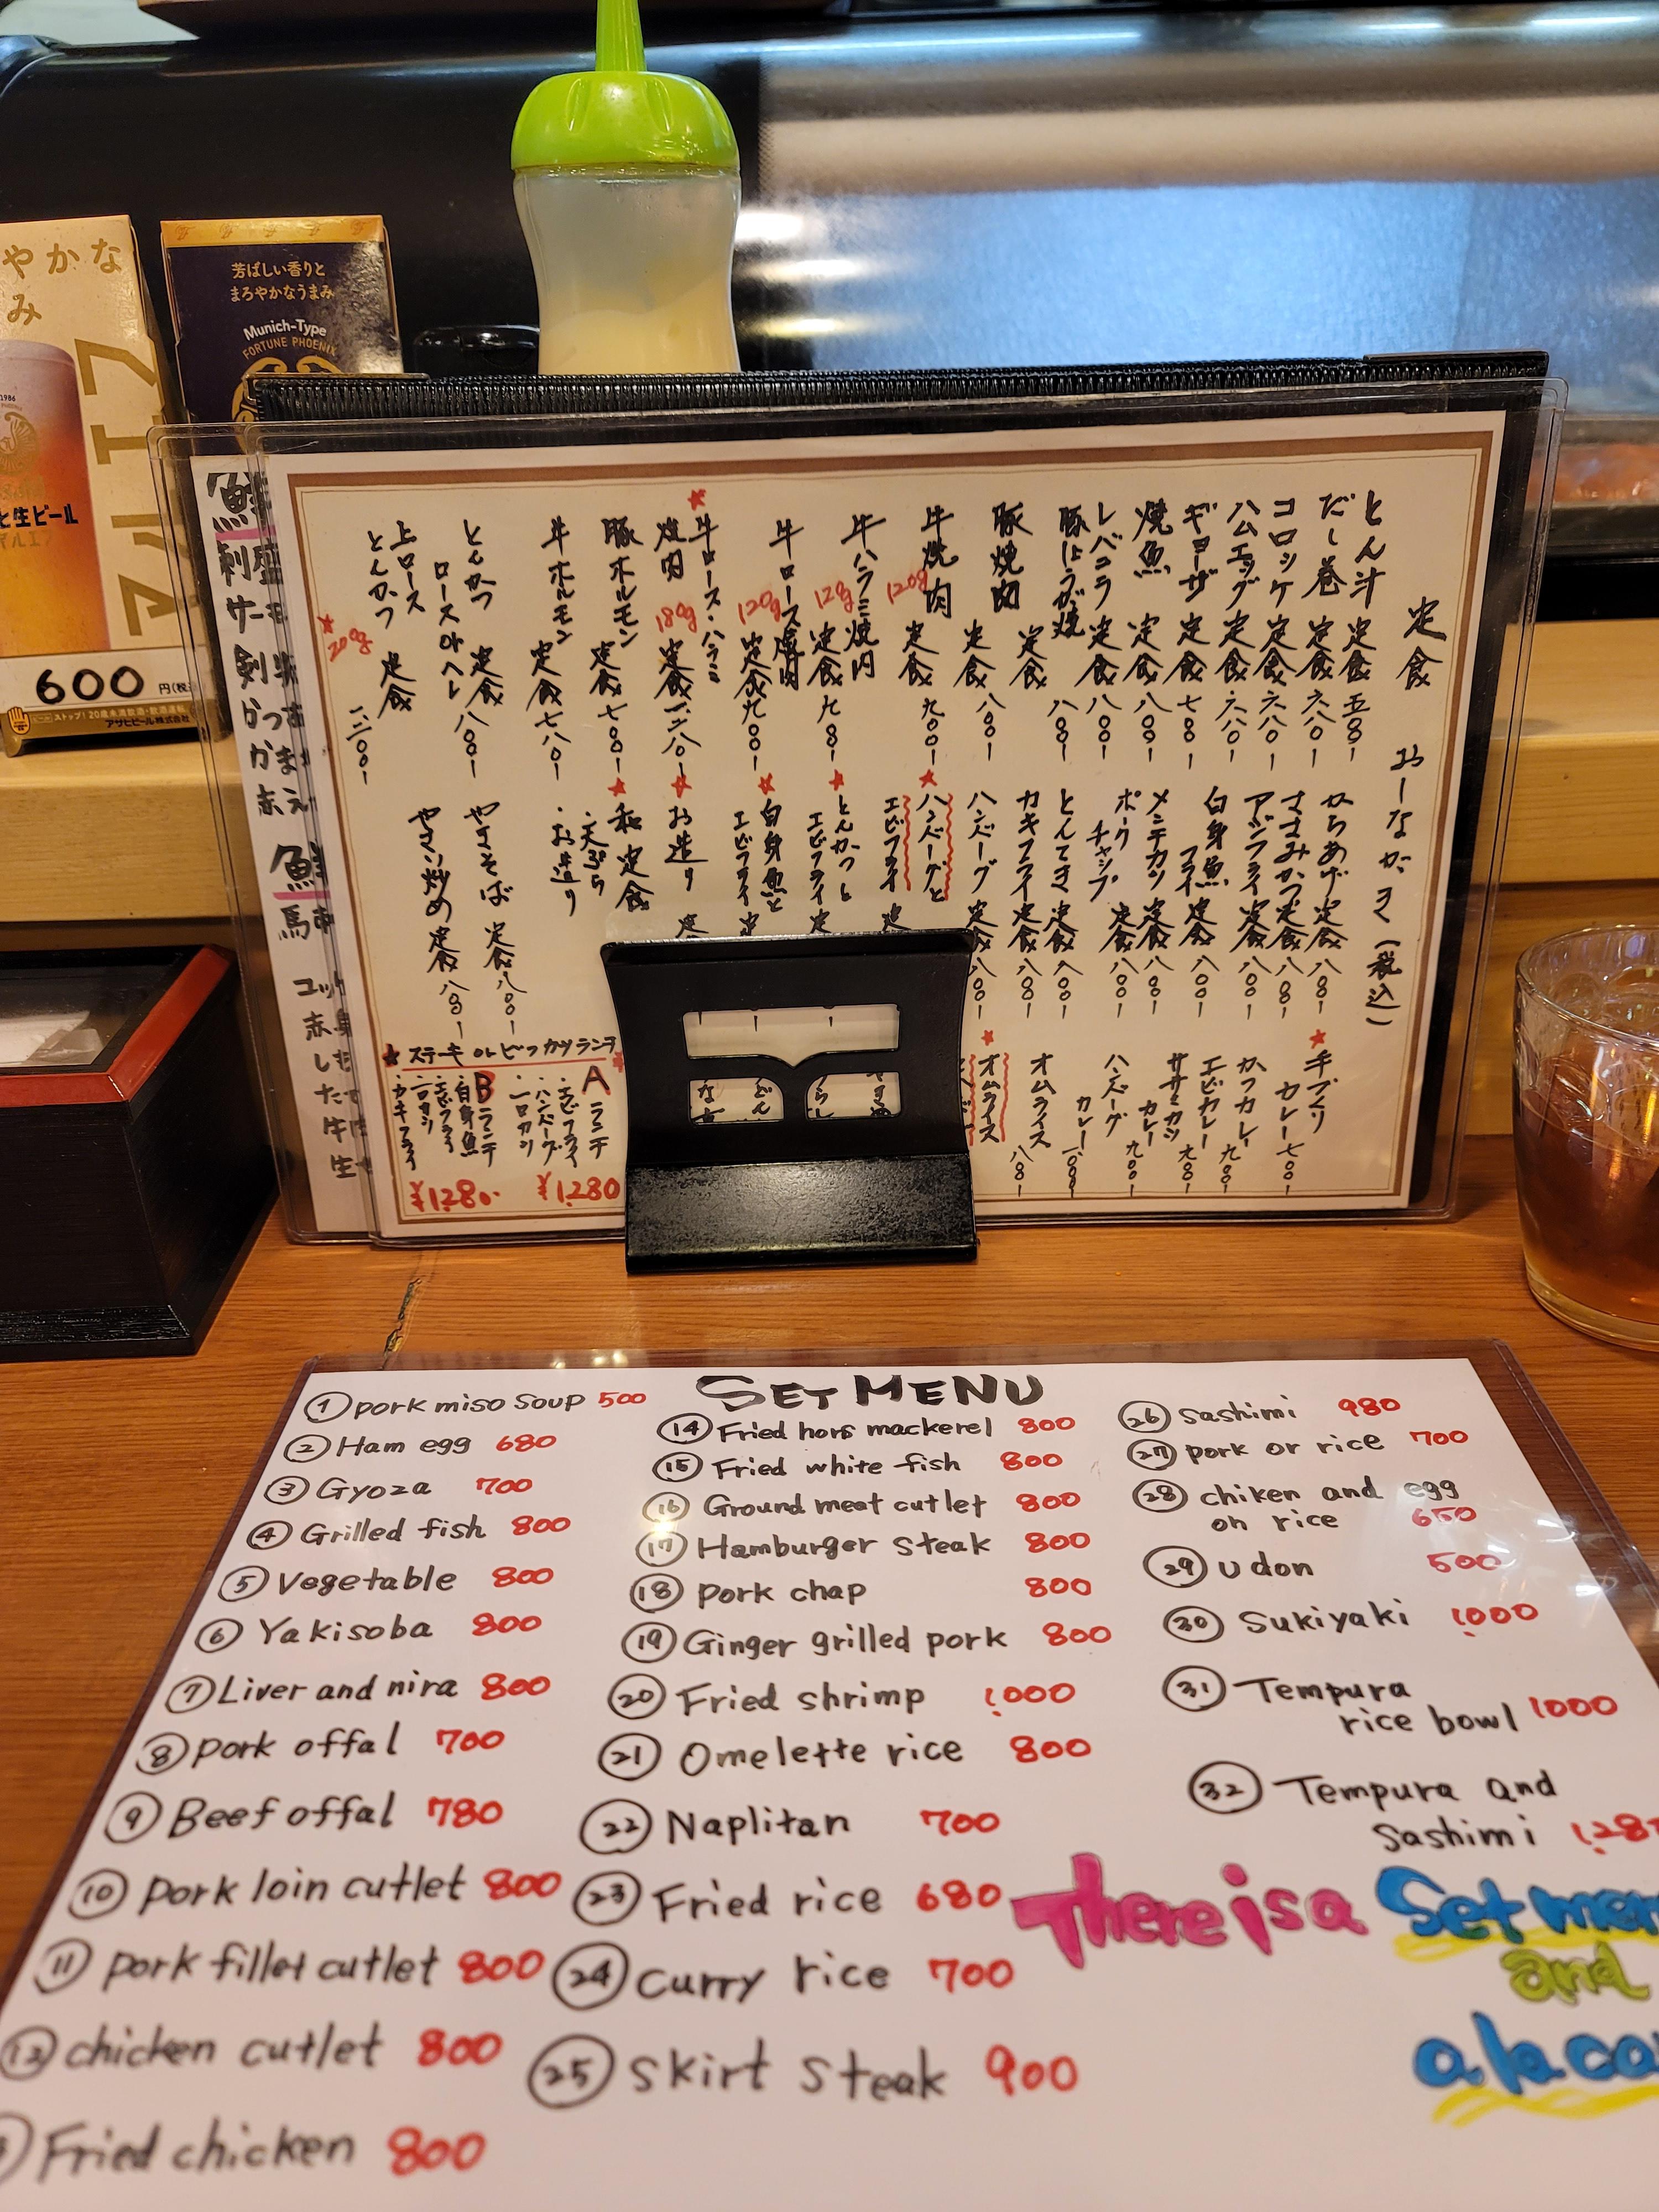 やかな
み
マルエフ
生ビール
600
円(税
ストップ!20歳未満飲酒・飲酒運転
アサヒビール株式会社
芳ばしい香りと
まろやかなうまみ
Munich-Type
FORTUNE PHOENIX
定食
おーながき(税込)
とん汁 定食 五〇〇-
だし巻 定食 六八〇-
コロッケ 定食 六八〇-
ハムエッグ 定食 六八〇-
ギョーザ 定食 七〇〇-
焼魚 定食 八〇〇-
レバニラ 定食 八〇〇-
豚しょうが焼 定食 八〇〇-
豚焼肉 定食 八〇〇-
牛焼肉 120g 定食 九〇〇-
牛ハラミ焼肉 120g 定食 九〇〇-
牛ロース焼肉 120g 定食 九〇〇-
★牛ロース・ハラミ焼肉 180g 定食
豚ホルモン 定食 七〇〇-
牛ホルモン 定食 七八〇-
とんかつ ロースorヘレ 定食 八〇〇-
上ロースとんかつ ★200g 定食
からあげ 定食 八〇〇-
ささみかつ 定食 八〇〇-
アジフライ 定食 八〇〇-
白身魚フライ 定食 八〇〇-
メンチカツ 定食 八〇〇-
ポークチャップ 定食 八〇〇-
とんてき 定食 八〇〇-
カキフライ 定食 八〇〇-
ハンバーグ 定食 八〇〇-
★ハンバーグとエビフライ 定
★とんかつとエビフライ 定
★白身魚とエビフライ 定
★お造り 定
★和定食
・天ぷら
・お造り
やきそば 定食 八〇〇-
やさい炒め 定食 八〇〇-
★手づくりカレー 七〇〇-
かつカレー 九〇〇-
エビカレー 九〇〇-
ササミカツカレー 九〇〇-
ハンバーグカレー
オムライス 八〇〇-
★オムライス
★ステーキorビフカツランチ
Aランチ
・エビフライ
・ハンバーグ
・一口カツ
¥1,280
Bランチ
・白身魚
・エビフライ
・一口カツ
・カキフライ
¥1,280-
SET MENU
① pork miso soup 500
② Ham egg 680
③ Gyoza 700
④ Grilled fish 800
⑤ Vegetable 800
⑥ Yakisoba 800
⑦ Liver and nira 800
⑧ pork offal 700
⑨ Beef offal 780
⑩ pork loin cutlet 800
⑪ pork fillet cutlet 800
⑫ chicken cutlet 800
Fried chicken 800
⑭ Fried hors mackerel 800
⑮ Fried white fish 800
⑯ Ground meat cutlet 800
⑰ Hamburger steak 800
⑱ pork chap 800
⑲ Ginger grilled pork 800
⑳ Fried shrimp 1,000
㉑ Omelette rice 800
㉒ Naplitan 700
㉓ Fried rice 680
㉔ curry rice 700
㉕ skirt steak 900
㉖ sashimi 980
㉗ pork or rice 700
㉘ chiken and egg
on rice 650
㉙ udon 500
㉚ sukiyaki 1,000
㉛ Tempura
rice bowl 1000
㉜ Tempura and
sashimi 1,28
There is a Set men
and
a la ca